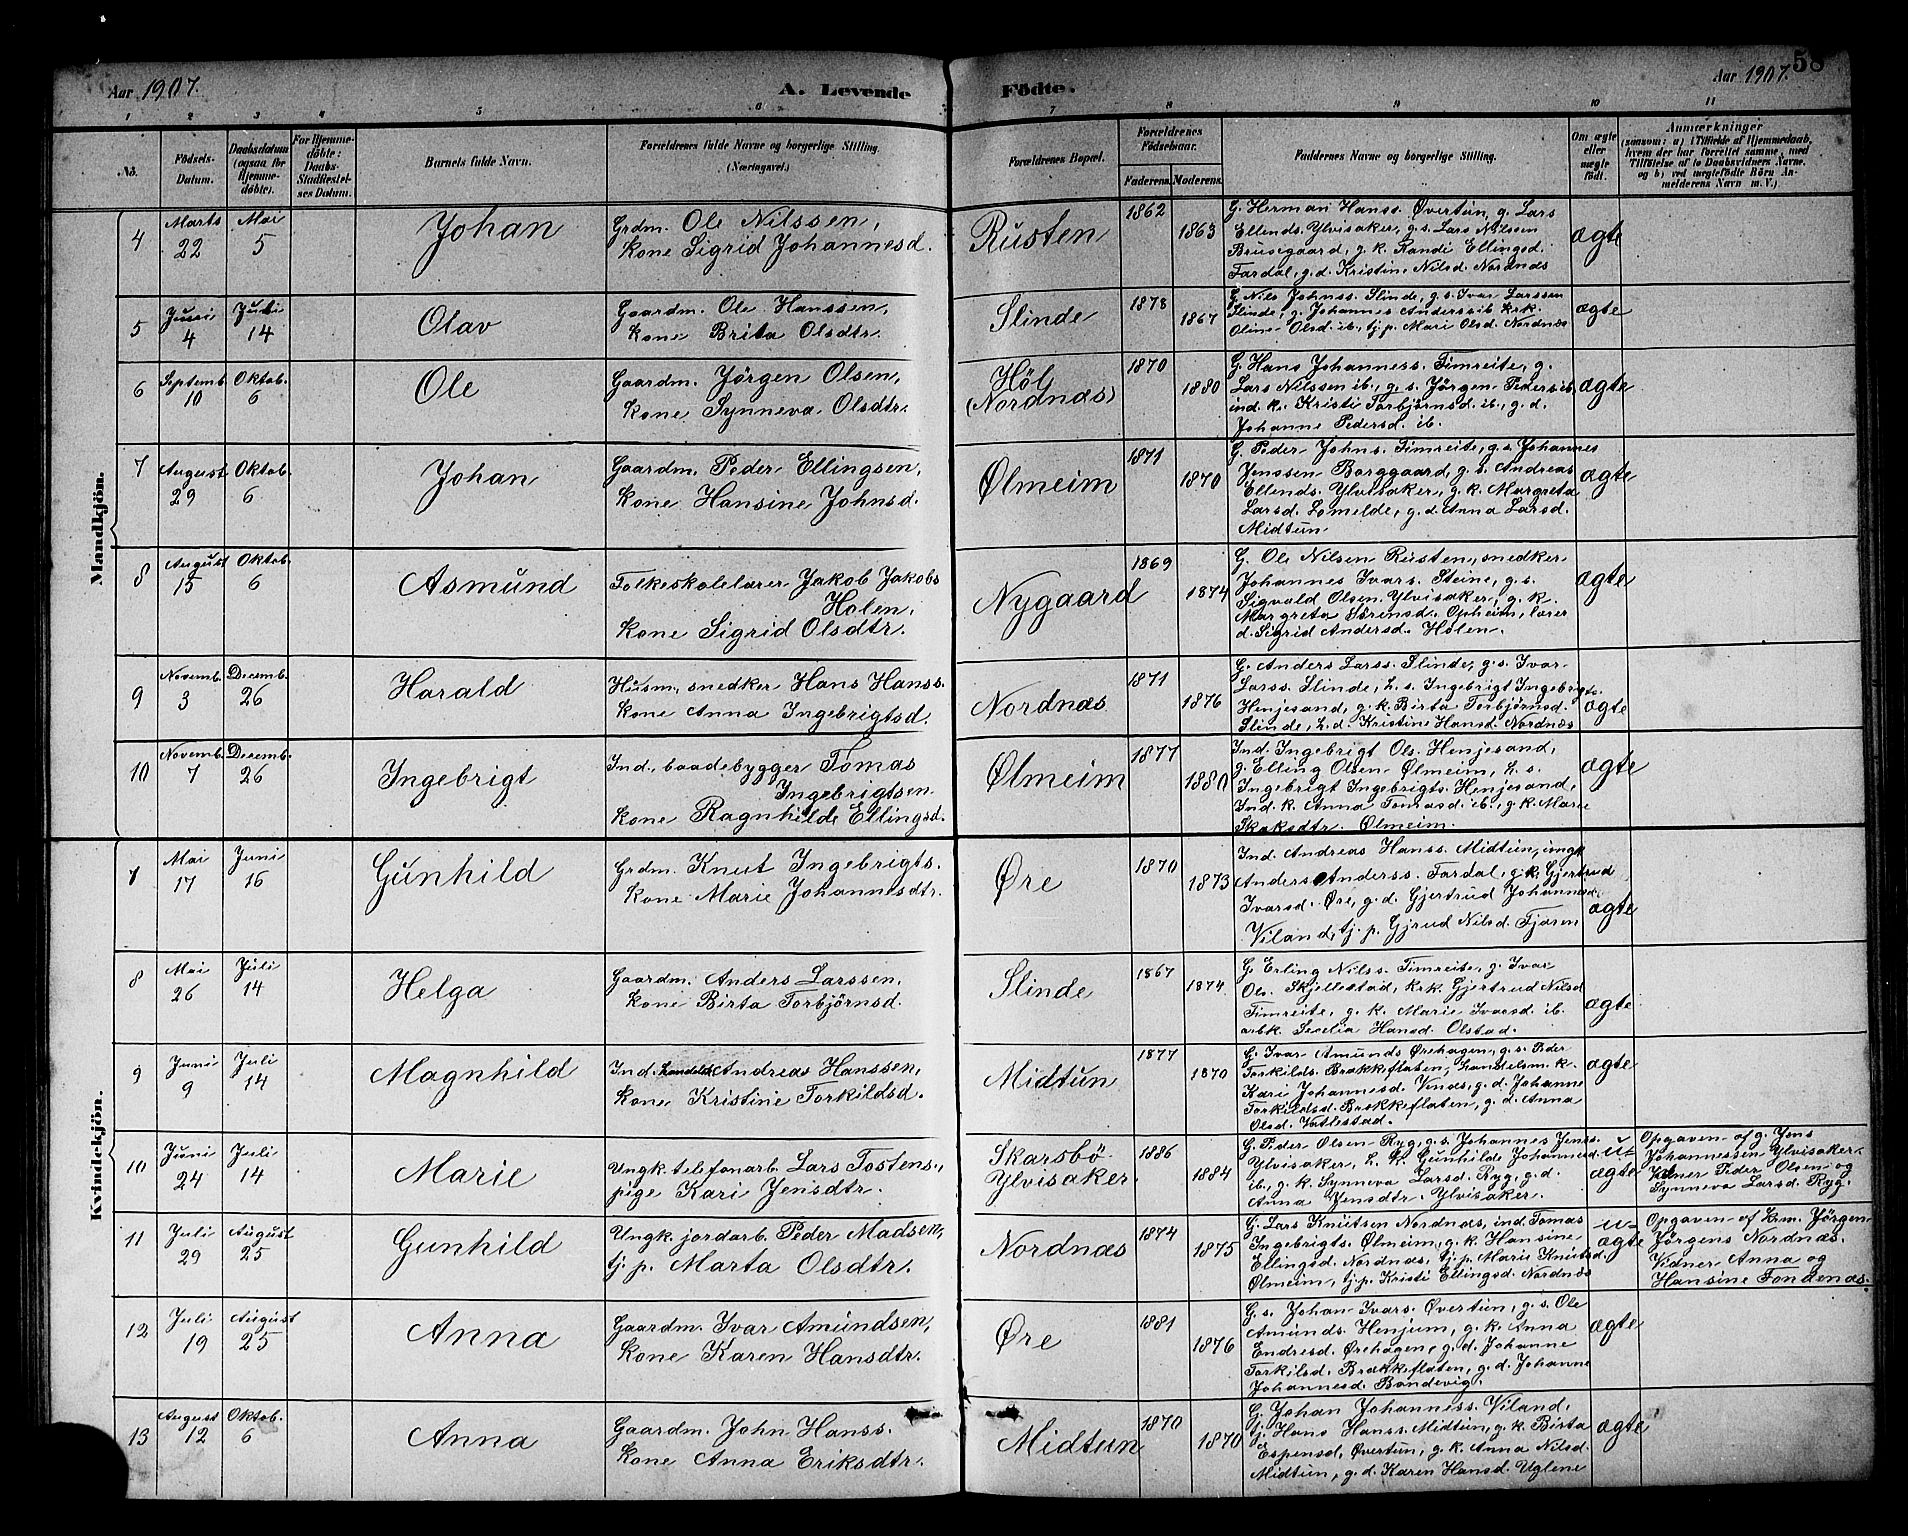 58
Aar 1907. A. Levende Födte. Aar 1907.
1 2 3 4 5 6 7 8 9 10 11
No. Födsels-Datum. Daabsdatum (ogsaa for Hjemmedöbte). For Hjemmedöbte: Daabs-Stadfæstelses Datum. Barnets fulde Navn. Forældrenes fulde Navne og borgerlige Stilling. (Næringsvei.) Forældrenes Bopæl. Forældrenes Födselsaar. Faderens. Moderens. Faddernes Navne og borgerlige Stilling. Om ægte eller uægte födt. Anmærkninger (saasom: a) i Tilfælde af Hjemmedaab, hvem der har forrettet samme, med Tilföielse af to Daabsvidners Navne, og b) ved uægtefödte Börn Anmelderens Navn m. V.)
Mandkjön.
4 Marts 22 Mai 5 Johan Grdm. Ole Nilssen,
Kone Sigrid Johannesd. Rusten 1862 1863 G. Herman Hanss. Øvertun, g. Lars
Ellends. Ylvisaker, g.s. Lars Nilssen
Brusegaard, g.k. Randi Ellingsd.
Fardal, g.d. Kristine Nilsd. Nordnæs ægte
5 Juni 4 Juli 14 Olav Gaardm. Ole Hanssen,
Kone Brita Olsdtr. Slinde 1878 1867 G. Nils Johnss. Slinde, g.s. Ivar Larssen
Slinde, g. Johannes Anderss ib. krk.
Oline Olsd. ib., tj.p. Mari Olsd. Nordnæs ægte
6 Septemb. 10 Oktob. 6 Ole Gaardm. Jörgen Olsen,
Kone Synneva Olsdtr. Höl
(Nordnæs) 1870 1880 G. Hans Johanness. Timreite, g.
Lars Nilssen ib., g.s. Jörgen Peders ib.
ind. k. Kristi Torbjörnsd. ib., g.d.
Johanne Pedersd. ib. ægte
7 August 29 Oktob. 6 Johan Gaardm. Peder Ellingsen,
Kone Hansine Johnsd. Ølmeim 1871 1870 G. Peder Johns. Timreite, g.s. Johannes
Jenssen Borggaard, g.s. Andreas
Ellends. Ylvisaker, g.k. Margreta
Larsd. Lomelde, g.d. Anna Larsd.
Midtun. ægte
8 August 15 Oktob. 6 Asmund Folkeskolelærer Jakob Jakobs
Holen,
Kone Sigrid Olsdtr. Nygaard 1869 1874 G. Ole Nilsen Rusten, snedker
Johannes Ivars. Steine, g.s.
Sigvald Olsen Ylvisaker, g.k.
Margreta Sörensd. Opheim, lærer
d. Sigrid Andersd. Holen. ægte
9 Novemb. 3 Decemb. 26 Harald Husm., snedker Hans Hanss.
Kone Anna Ingebrigtsd. Nordnæs 1871 1876 G. Anders Larss. Slinde, g.s. Ivar
Larss. Slinde, h.s. Ingebrigt Ingebrigts.
Henjesand, g.k. Birta Torbjørnsd.
Slinde, h.d. Kristine Hansd. Nordnæs ægte
10 Novemb. 7 Decemb. 26 Ingebrigt Ind., baadebygger Tomas
Ingebrigtsen
Kone Ragnhilde Ellingsd. Ølmeim 1877 1880 Ind. Ingebrigt Ols. Henjesand,
g. Elling Olsen Ølmeim, h.s.
Ingebrigt Ingebrigts. Henjesand,
Ind. k. Anna Tomasd. ib., g.k. Marie
Skaksdtr. Ølmeim. ægte
Kvindekjön.
7 Mai 17 Juni 16 Gunhild Grdm. Knut Ingebrigts.
Kone Marie Johannesdtr. Øre 1870 1873 Ind. Andreas Hanss. Midtun, ungk
Anders Anderss. Fardal, g.k. Gjertrud
Ivarsd. Øre, g.d. Gjertrud Johannesd.
Viland, tj.p. Gjrud Nilsd. Fjæren ægte
8 Mai 26 Juli 14 Helga Gaardm. Anders Larssen,
Kone Birta Torbjörnsd. Slinde 1867 1874 G. Erling Nilss. Timreite, g. Ivar
Ols. Skjellestad, krk. Gjertrud Nilsd
Timreite, g.k. Marie Ivarsd. ib.
arbk. Secelia Hansd. Olstad. ægte
9 Juni 9 Juli 14 Magnhild Ind. handelsm Andreas Hanssen,
Kone Kristine Torkildsd. Midtun 1877 1870 G. Ivar Amunds Ørehagen, g.s. Peder
Torkilds. Brækkeflaten, handelsm. k.
Kari Johannesd. Vinæs, g.d. Johanne
Torkildsd. Brækkeflaten, g.d. Anna
Olsd. Vatlestad. ægte
10 Juni 24 Juli 14 Marie Ungk. telefonarb. Lars Tostens.,
pige Kari Jensdtr. Skarsbö
Ylvisaker. 1886 1884 G. Peder Olsen Ryg, g.s. Johannes Jenss.
Ylvisaker, h.k. Gunhilde Johannesd.
ib., g.k. Synneva Larsd. Ryg, g.d.
Anna Jensdtr. Ylvisaker. u-
ægte Opgaven af g. Jens
Johannessen Ylvisaker.
Vidner Peder Olsen og
Synneva Larsd. Ryg.
11 Juli 29 August 25 Gunhild Ungk. jordarb. Peder Madsen,
tj.p. Marta Olsdtr. Nordnæs 1874 1875 G. Lars Knutsen Nordnæs, ind. Tomas
Ingebrigts. Ølmeim, g.k. Hansine
Ellingsd. Nordnæs, tj.p. Marie Knutsd.
Ølmeim, tj.p. Kristi Ellingsd. Nordnæs u-
ægte Opgaven af krm. Jörgen
Jörgens Nordnæs.
Vidner Anna og
Hansine Fondenæs.
12 Juli 19 August 25 Anna Gaardm. Ivar Amundsen,
Kone Karen Hansdtr. Øre 1881 1876 G.s. Johan Ivars. Øvertun, g.s. Ole
Amunds. Henjum, g.k. Anna
Endresd. Ørehagen, g.d. Johanne
Torkilsd. Brækkeflaten, g.d. Johanne
Johannesd. Bondevig. ægte
13 August 12 Oktob. 6 Anna Gaardm. John Hanss.
Kone Anna Eriksdtr. Midtun 1870 1870 G. Johan Johanness. Viland,
g. Hans Hanss. Midtun, g.k. Birta
Espensd. Øvertun, g.k. Anna Nilsd.
Midtun, g.d. Karen Hansd. Uglene ægte